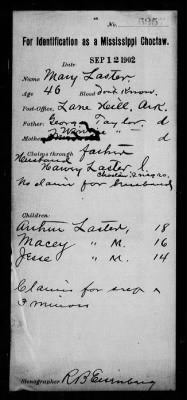 No. 695
For Identification as a Mississippi Choctaw.
Date SEP 12 1902
Name Mary Laster
Age 46 Blood Don't Know.
Post-Office, Lane Hill, Ark.
Father: George Taylor, d
Mother: Winnie " d
Claims through father
Husband Harvey Laster l.
no claim for husband
Children:
Arthur Laster, 18
Macey " M. 16
Jesse " M. 14
Claims for self &
3 minors
Stenographer R B